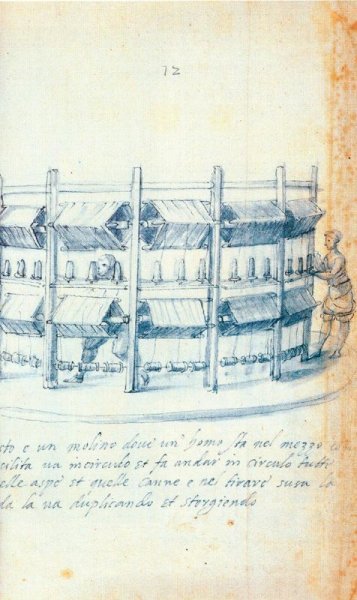 12
sto e un molino dove un homo sta nel mezzo con
cilita va incirculo et fa andar in circulo tutte
elle aspe et quelle canne e nel tirare suso la
da la va duplicando et storgiendo